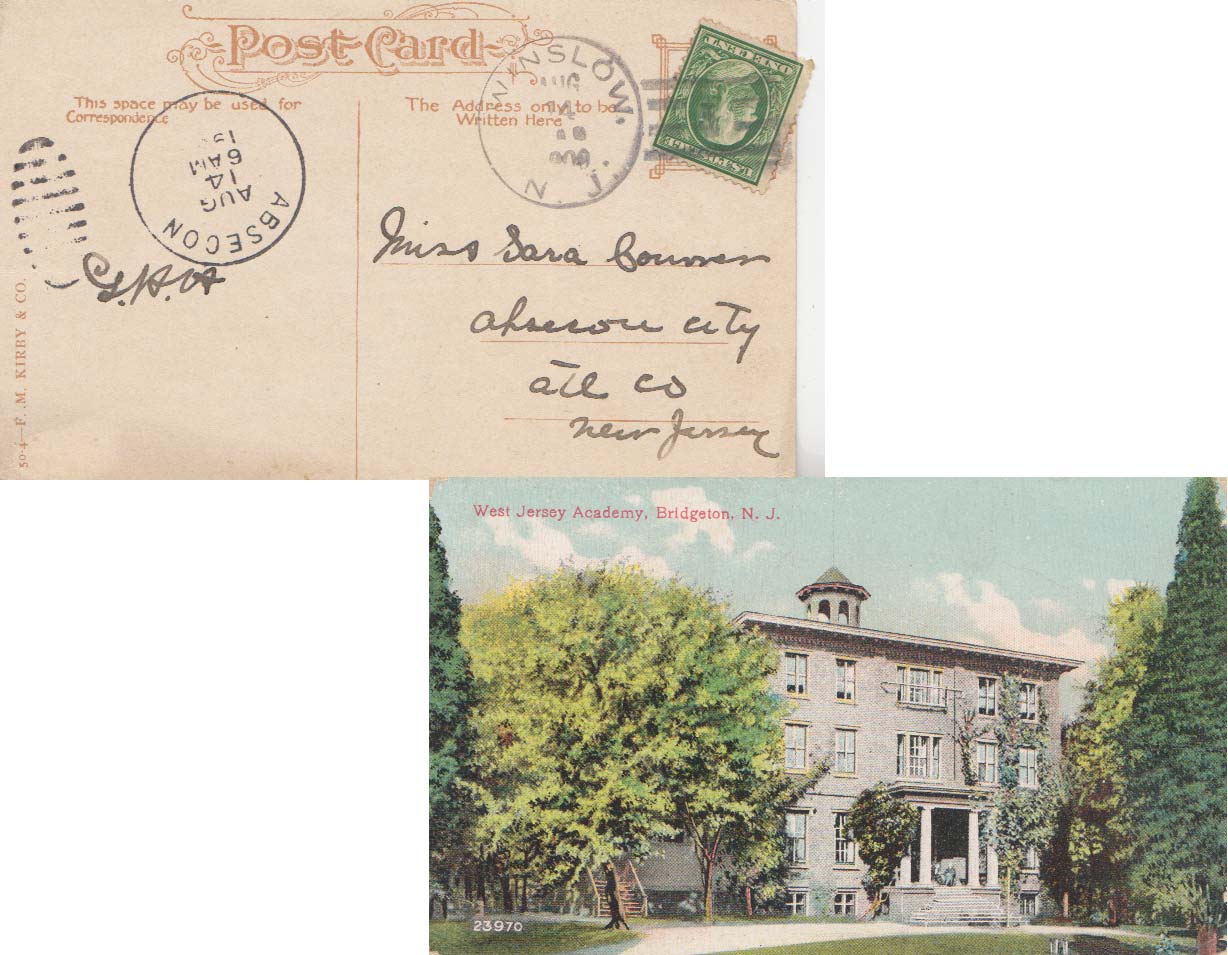 Post Card
This space may be used for
Correspondence
The Address only to be
Written Here
WINSLOW.
AUG
14
N. J.
ONE CENT
U.S. POSTAGE
ABSECON
AUG
14
6 AM
Miss Sara
Absecon City
Atl Co
New Jersey
50-4—F. M. KIRBY & CO.
West Jersey Academy, Bridgeton, N. J.
23970